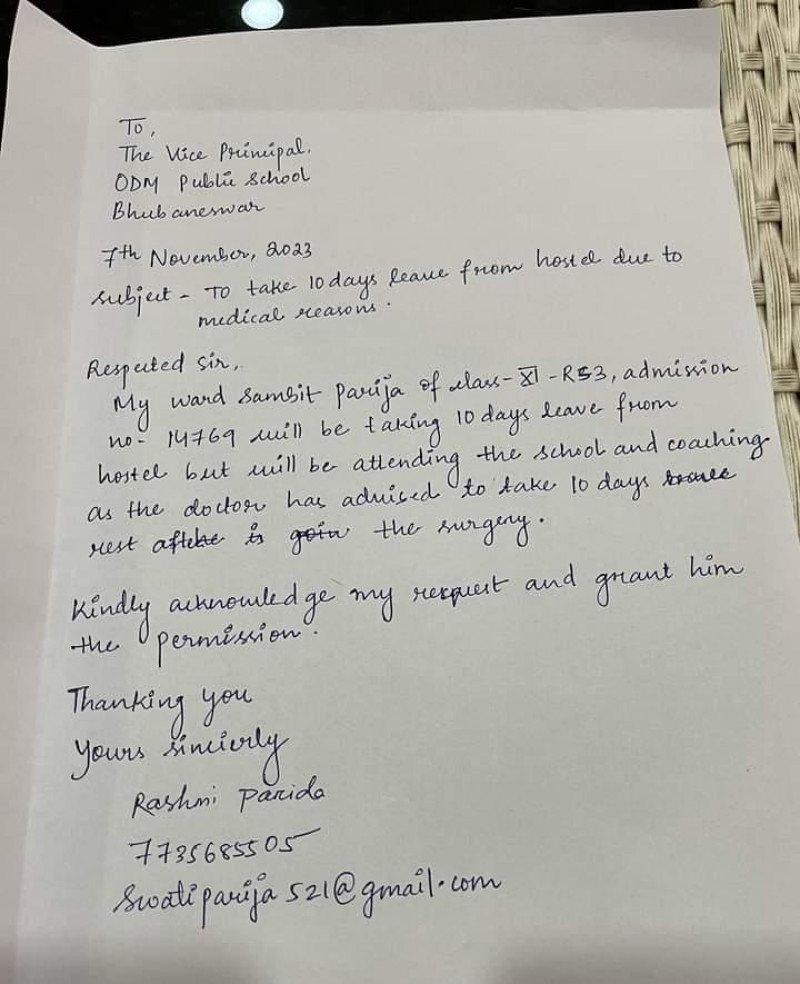 To,
The Vice Principal,
ODM Public School
Bhubaneswar
7th November, 2023
Subject - To take 10 days leave from hostel due to
medical reasons.
Respected Sir,
My ward Sambit Parija of class - XI - RS3, admission
no - 14769 will be taking 10 days leave from
hostel but will be attending the school and coaching
as the doctor has advised to take 10 days
rest the surgery.
Kindly acknowledge my request and grant him
the permission.
Thanking you
Yours sincierly
Rashmi Parida
7735685505
swatiparija521@gmail.com